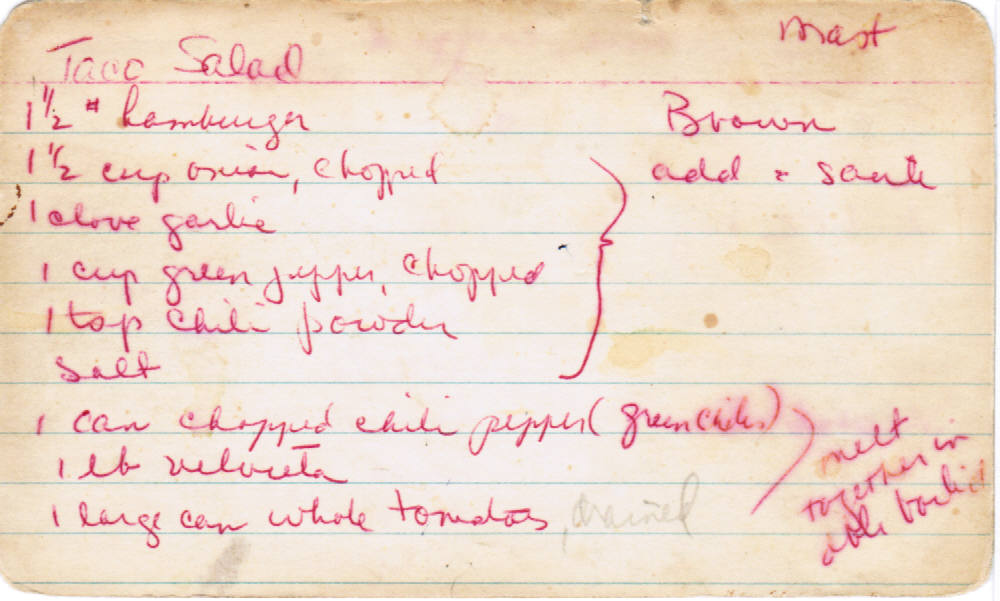 Mast
Taco Salad
1 1/2 # hamburger Brown
1 1/2 cup onion, chopped add + saute
1 clove garlic
1 cup green pepper, chopped
1 tsp chili powder
Salt
1 can chopped chili pepper (green chiles)
1 lb velveeta
1 large can whole tomatoes, drained
melt
together in
dble boiler